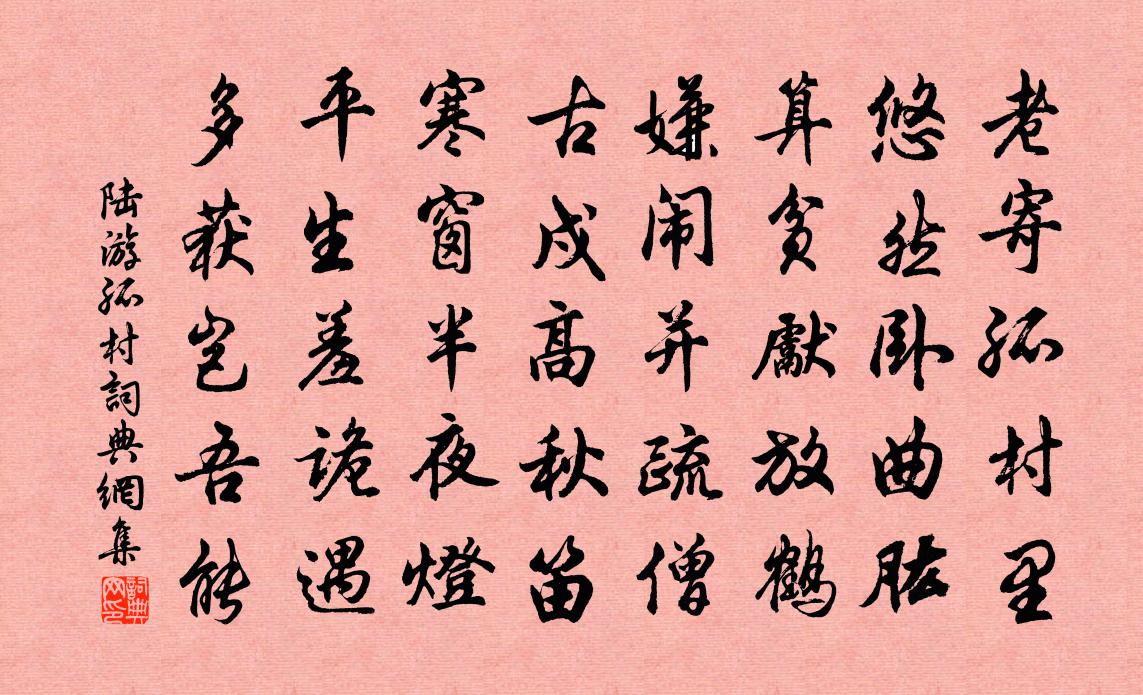 老寄孤村里
悠然卧曲肱
算贫獻放鶴
嫌闹并疏僧
古戍高秋笛
寒窗半夜燈
平生羞詭遇
多获岂吾能
陆游孤村詞典網集
詞典网印